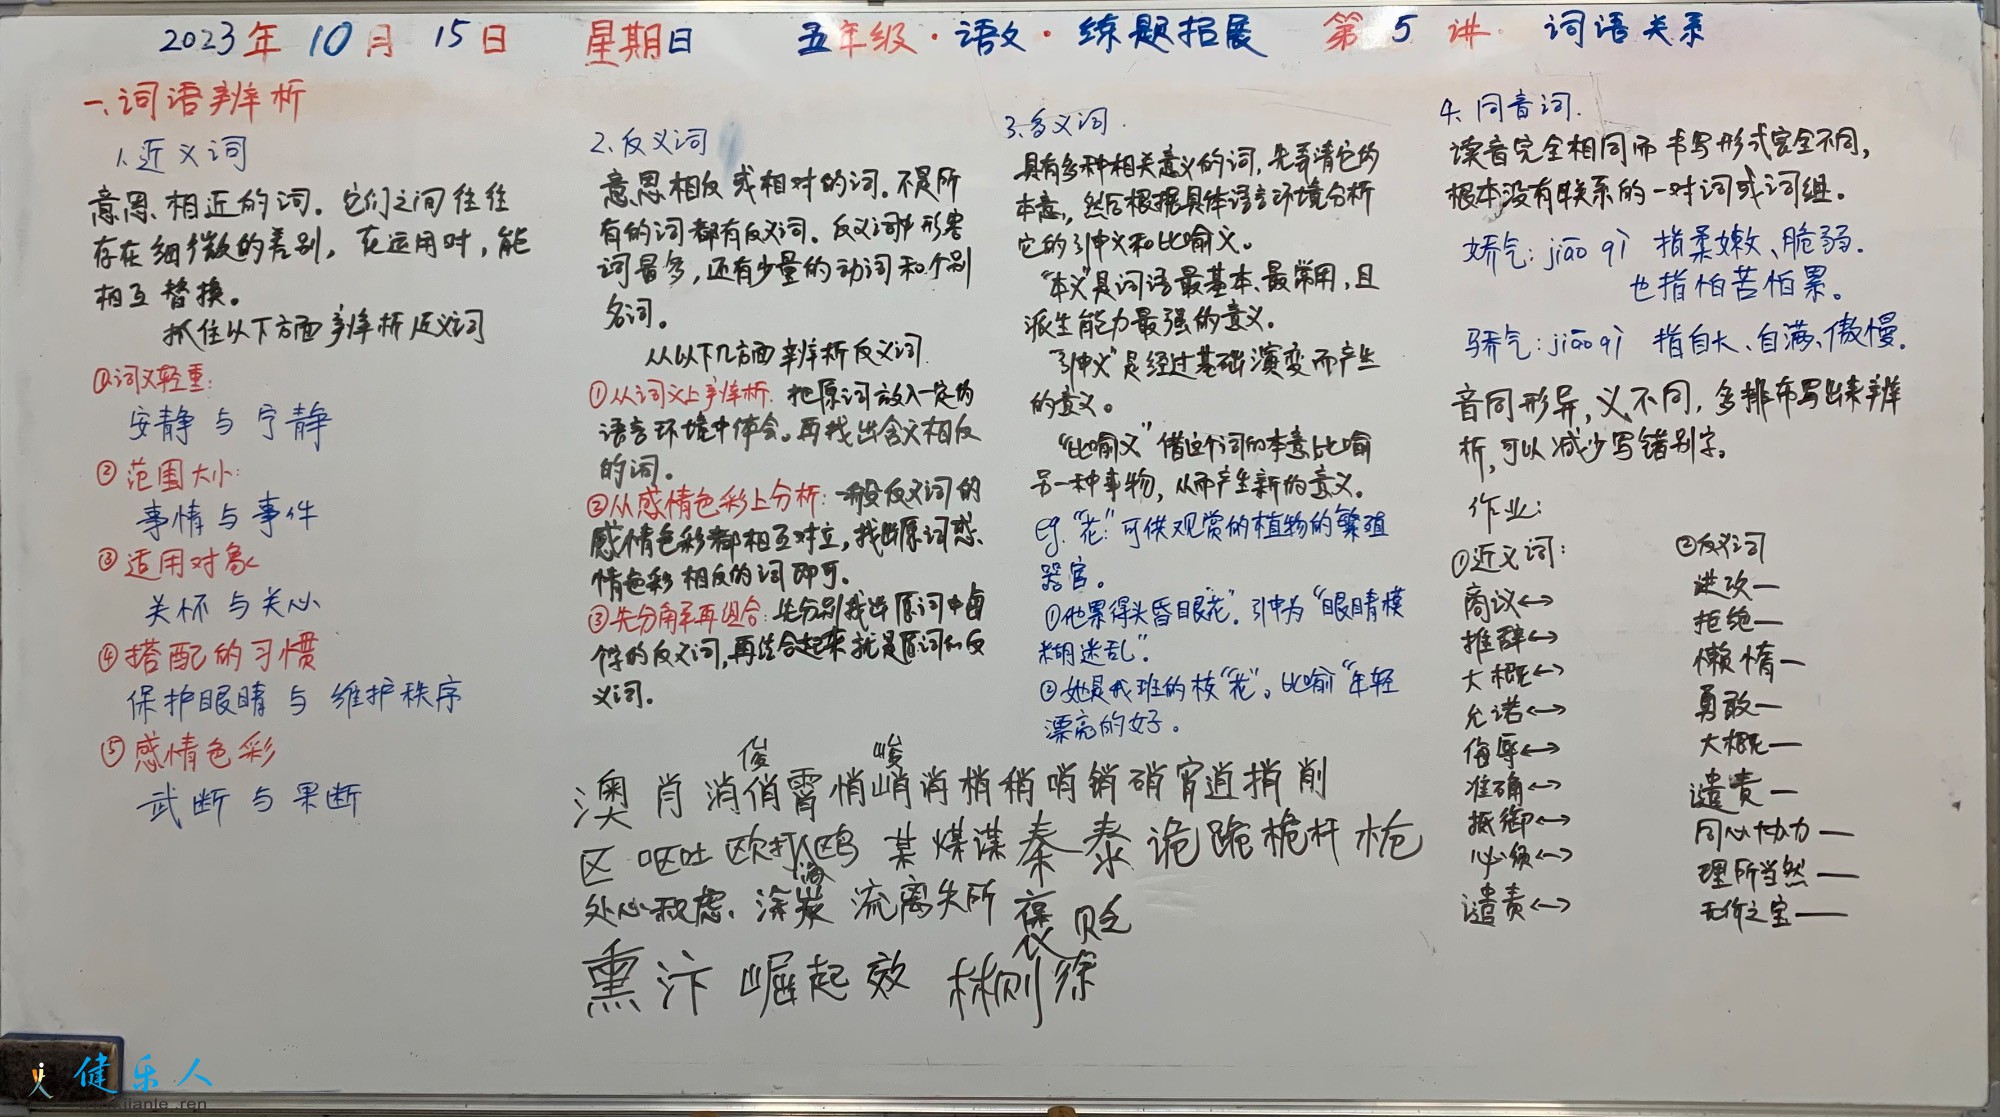 2023年 10月 15日 星期日 五年级·语文·练题拓展 第 5 讲 词语关系
一、词语辨析
1.近义词
意思相近的词。它们之间往往
存在细微的差别，在运用时，能
相互替换。
抓住以下方面辨析近义词
①词义轻重:
安静与宁静
②范围大小:
事情与事件
③适用对象
关怀与关心
④搭配的习惯
保护眼睛与维护秩序
⑤感情色彩
武断与果断
2.反义词
意思相反或相对的词。不是所
有的词都有反义词。反义词中形容
词最多，还有少量的动词和个别
名词。
从以下几方面辨析反义词
①从词义上辨析:把原词放入一定的
语言环境中体会。再找出含义相反
的词。
②从感情色彩上分析:一般反义词的
感情色彩都相互对立，找出原词感
情色彩相反的词即可。
③先分解再组合:先分别找出原词中每
个字的反义词，再结合起来就是原词的反
义词。
3.多义词.
具有多种相关意义的词，先弄清它的
本意，然后根据具体语言环境分析
它的引申义和比喻义。
“本义”是词语最基本、最常用，且
派生能力最强的意义。
“引申义”是经过基础演变而产生
的意义。
“比喻义”借这个词的本意比喻
另一种事物，从而产生新的意义。
eg.“花:”可供观赏的植物的繁殖
器官。
①他累得头昏眼花”。引申为“眼睛模
糊迷乱”。
②她是我班的校“花”。比喻“年轻
漂亮的女子。
4.同音词.
读音完全相同而书写形式完全不同，
根本没有联系的一对词或词组。
娇气:jiāo qì 指柔嫩、脆弱.
也指怕苦怕累。
骄气:jiāo qì 指自大、自满、傲慢.
音同形异，义不同，多排布写出来辨
析，可以减少写错别字。
作业:
①近义词:
商议↔
推辞↔
大概↔
允诺↔
侮辱↔
准确↔
抵御↔
必须↔
谴责↔
②反义词
进攻—
拒绝—
懒惰—
勇敢—
大概—
谴责—
同心协力—
理所当然—
无价之宝—
俊 峻
澳 肖 消 俏 霄 悄 峭 消 梢 稍 哨 销 硝 宵 逍 捎 削
区 呕吐 欧 鸥 某 煤 谋 秦 泰 诡 跪 桅杆 枪
处心积虑. 涂炭 流离失所 褒 贬
熏 汴 崛起 效 林则徐
健乐人